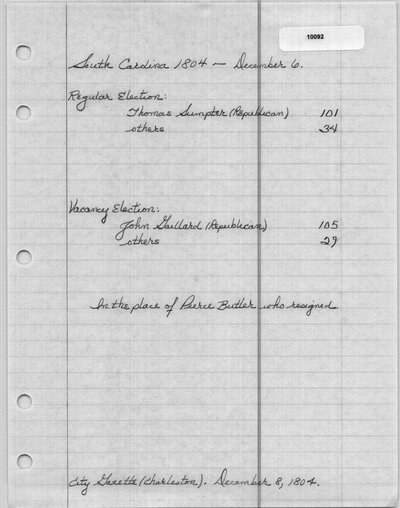 10092
South Carolina 1804 — December 6.
Regular Election:
Thomas Sumpter (Republican) 101
others 34
Vacancy Election:
John Gaillard (Republican) 105
others 29
In the place of Pierce Butler who resigned
City Gazette (Charleston). December 8, 1804.